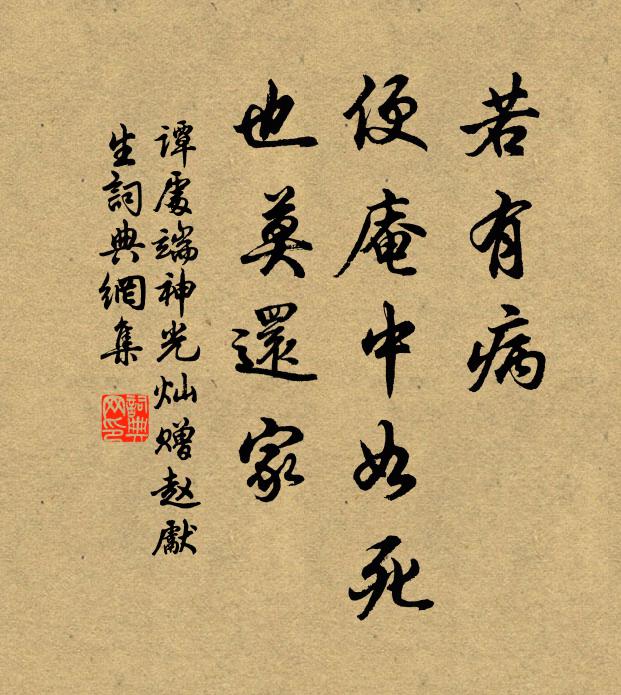 若有病
便庵中如死
也莫還家
譚處端神光灿赠赵獻
生詞典網集
詞典网印